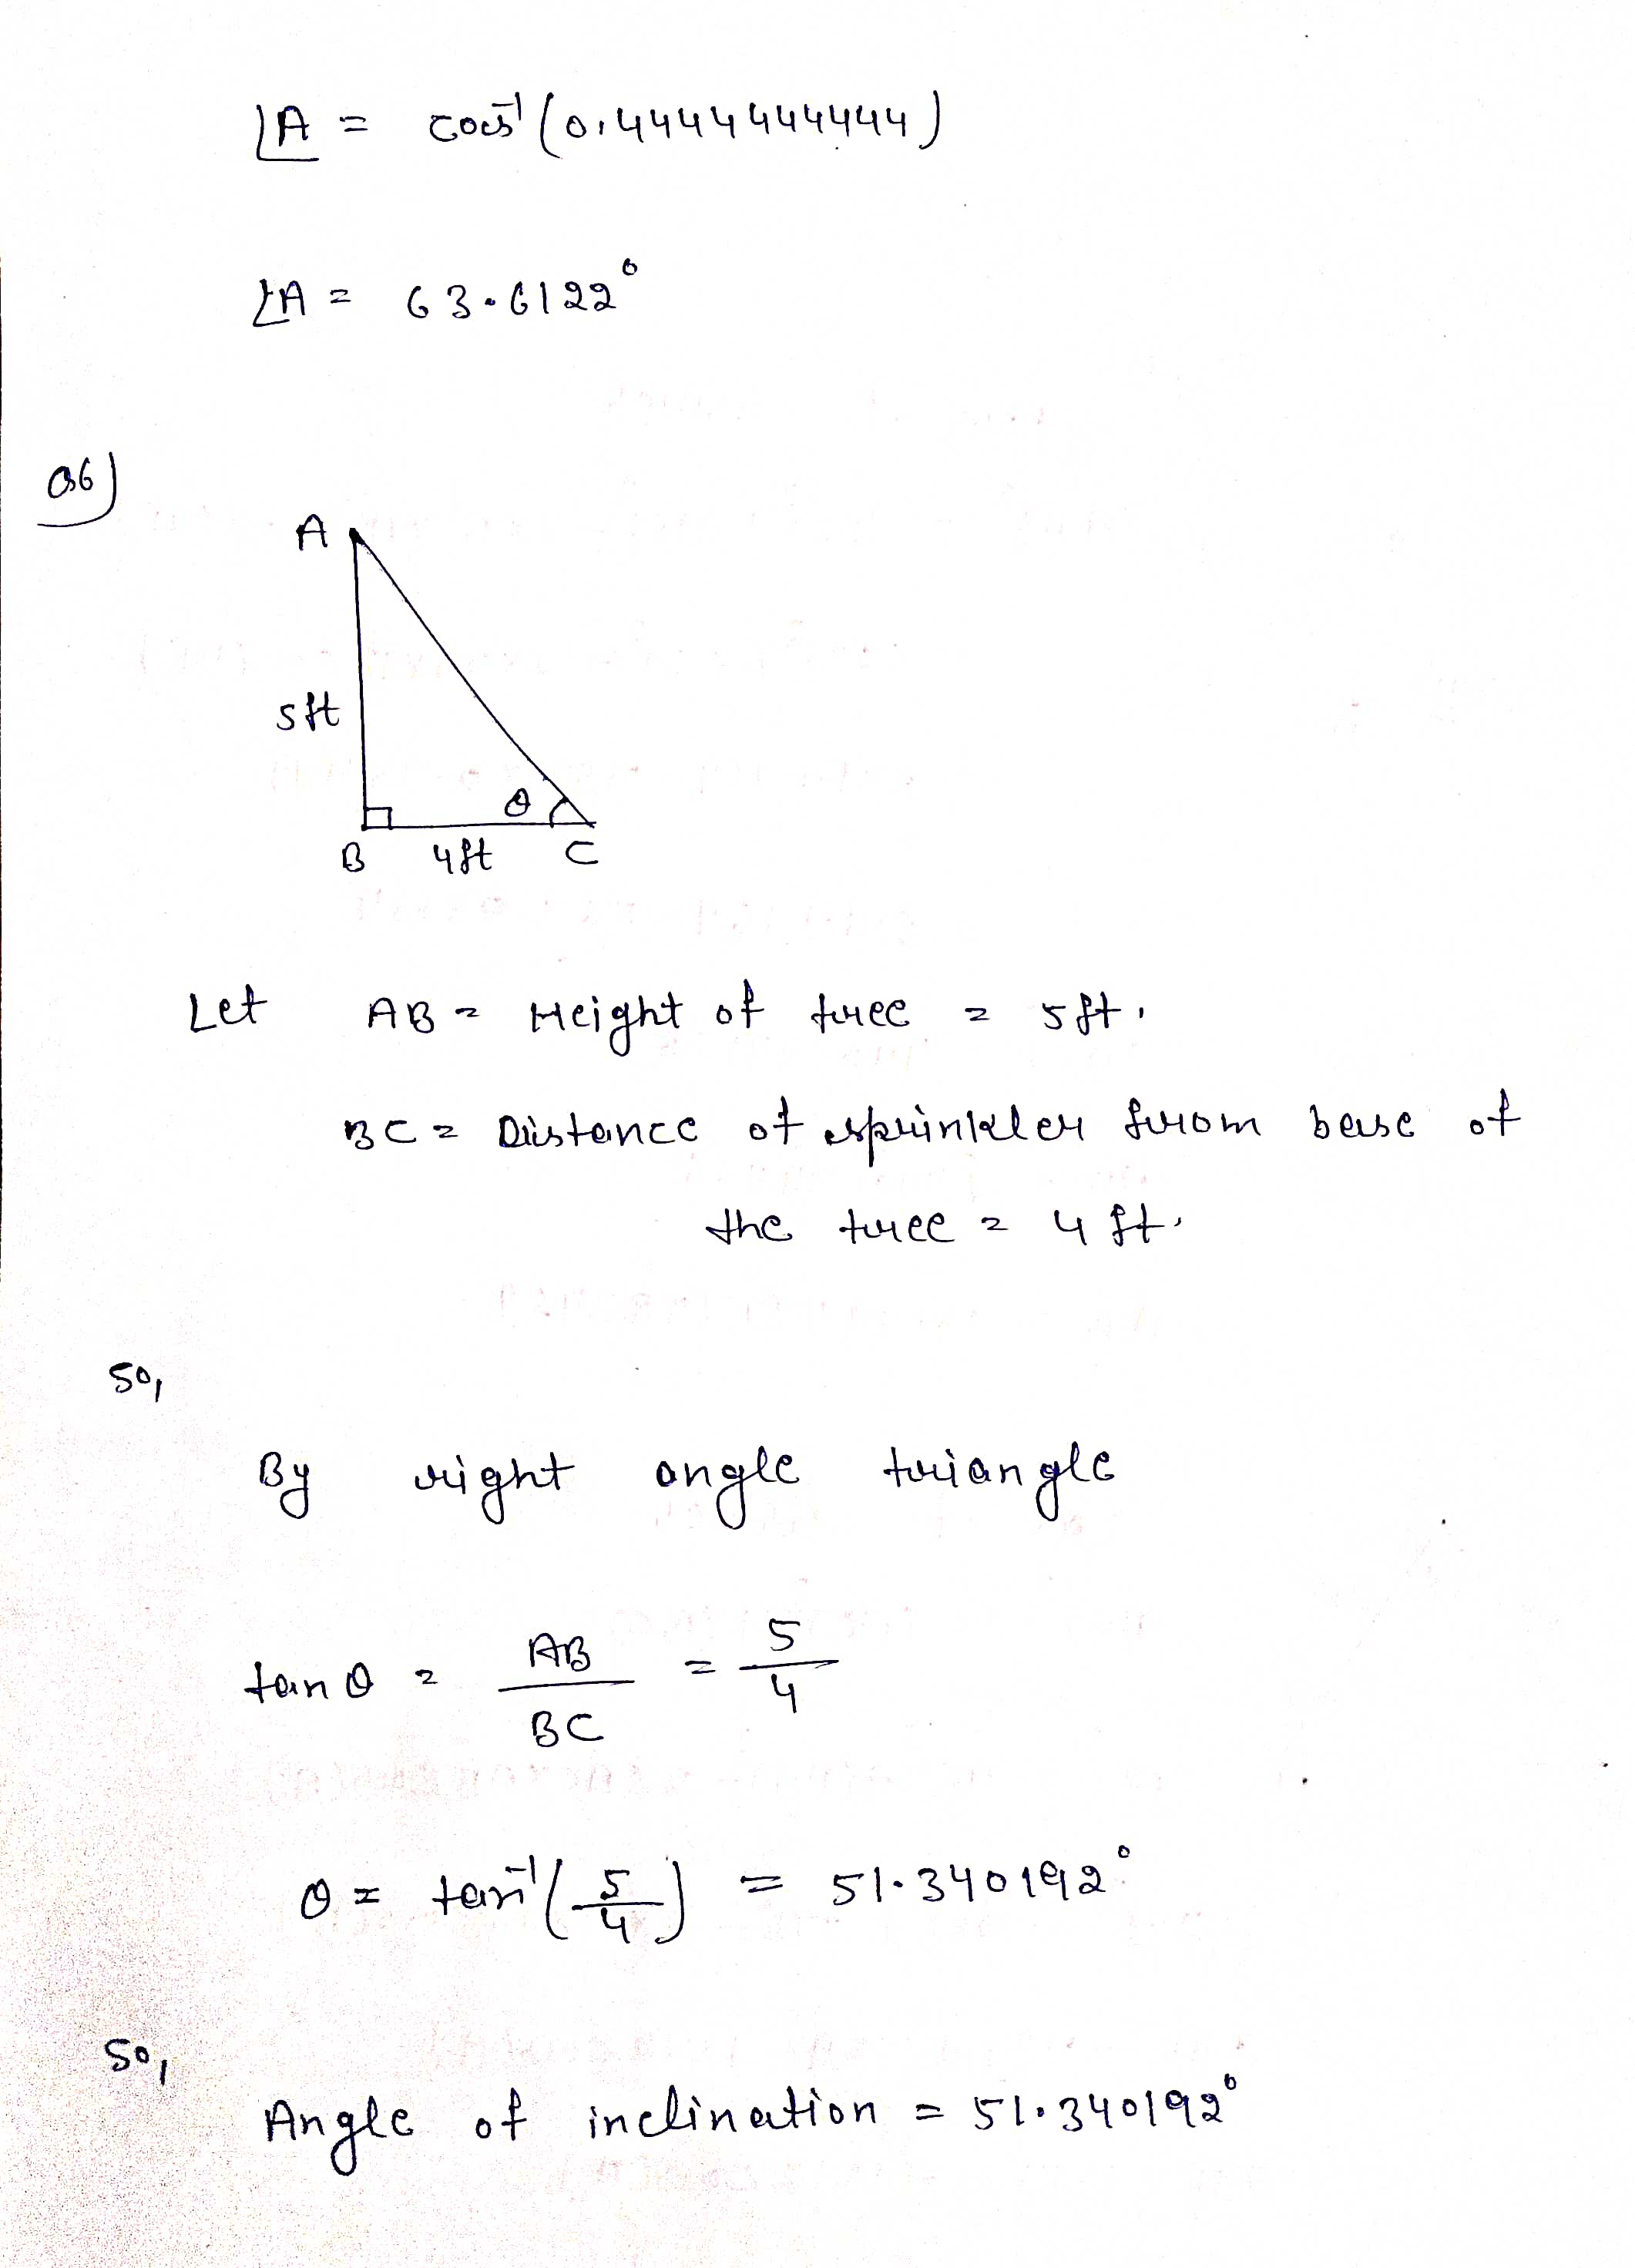 ∠A = cos⁻¹(0.4444444444)
∠A = 63.6122°
Q6)
A
5ft
θ
B 4ft C
Let AB = Height of tree = 5ft.
BC = Distance of sprinkler from base of
the tree = 4 ft.
So,
By right angle triangle
tan θ = AB/BC = 5/4
θ = tan⁻¹(5/4) = 51.340192°
So,
Angle of inclination = 51.340192°